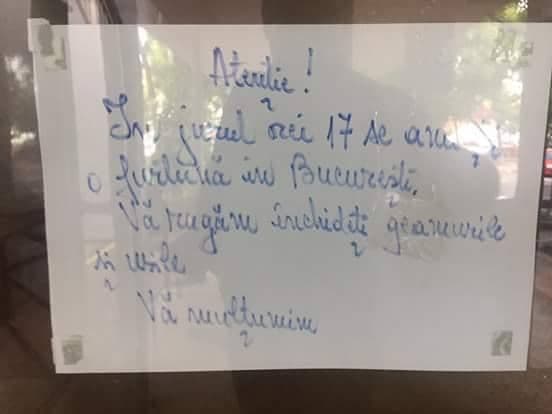 Atenție!
În jurul orei 17 se anunță
o furtună în București.
Vă rugăm închideți geamurile
și ușile
Vă mulțumim